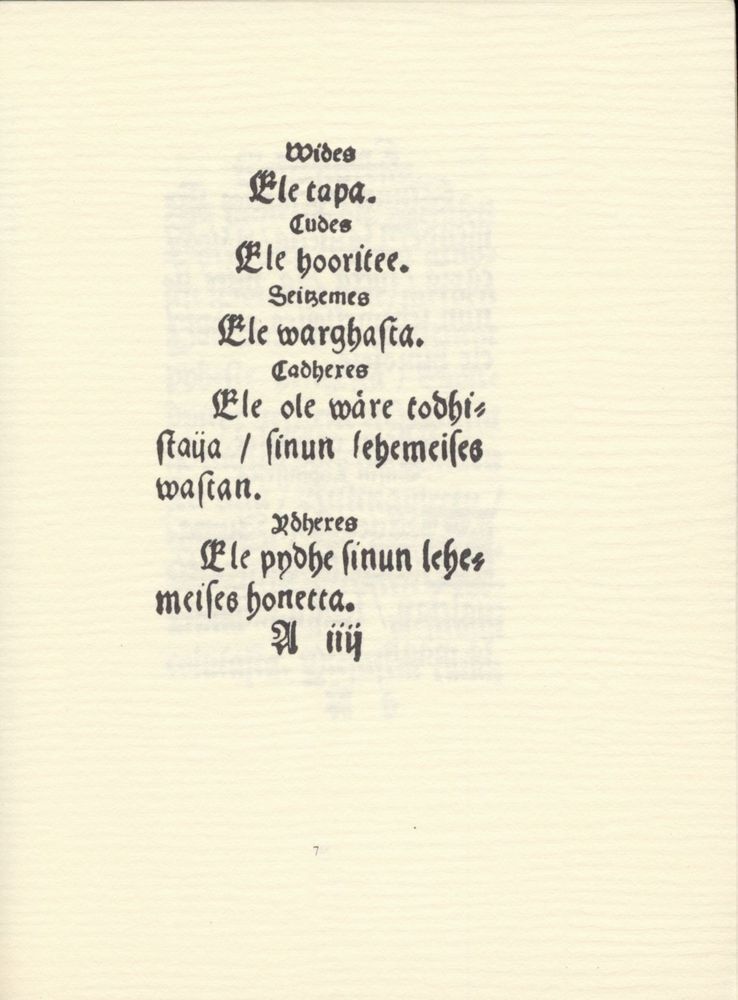 Wides
Ele tapa.
Cudes
Ele hooritee.
Seitzemes
Ele warghaſta.
Cadhexes
Ele ole wåre todhi⸗
ſtaija / ſinun lehemeiſes
waſtan.
Ydhexes
Ele pydhe ſinun lehe⸗
meiſes honetta.
A iiij
7